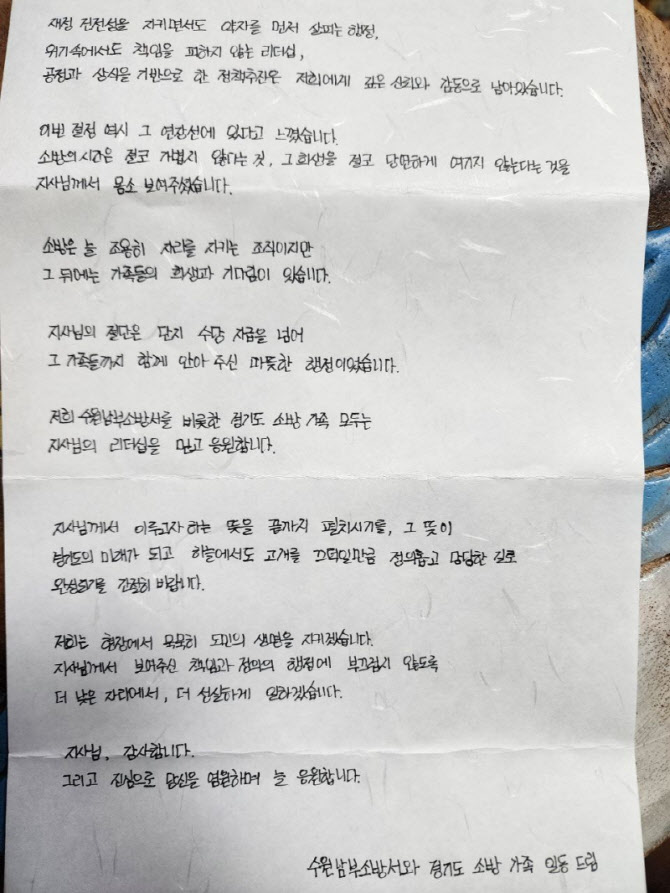 재정 건전성을 지키면서도 약자를 먼저 살피는 행정,
위기속에서도 책임을 피하지 않는 리더십,
공정과 상식을 기반으로 한 정책추진은 저희에게 깊은 신뢰와 감동으로 남아있습니다.
이번 결정 역시 그 연장선에 있다고 느꼈습니다.
소방의 시간은 결코 가볍지 않다는 것, 그 희생을 결코 당연하게 여기지 않는다는 것을
지사님께서 몸소 보여주셨습니다.
소방은 늘 조용히 자리를 지키는 조직이지만
그 뒤에는 가족들의 희생과 기다림이 있습니다.
지사님의 결단은 단지 수당 지급을 넘어
그 가족들까지 함께 안아 주신 따뜻한 행정이었습니다.
저희 수원남부소방서를 비롯한 경기도 소방 가족 모두는
지사님의 리더십을 믿고 응원합니다.
지사님께서 이루고자 하는 뜻을 끝까지 펼치시기를, 그 뜻이
경기도의 미래가 되고 하늘에서도 고개를 끄덕일만큼 정의롭고 당당한 길로
완성되기를 간절히 바랍니다.
저희는 현장에서 묵묵히 도민의 생명을 지키겠습니다.
지사님께서 보여주신 책임과 정의의 행정에 부끄럽지 않도록
더 낮은 자리에서, 더 성실하게 일하겠습니다.
지사님, 감사합니다.
그리고 진심으로 당신을 염원하며 늘 응원합니다.
수원남부소방서와 경기도 소방 가족 일동 드림